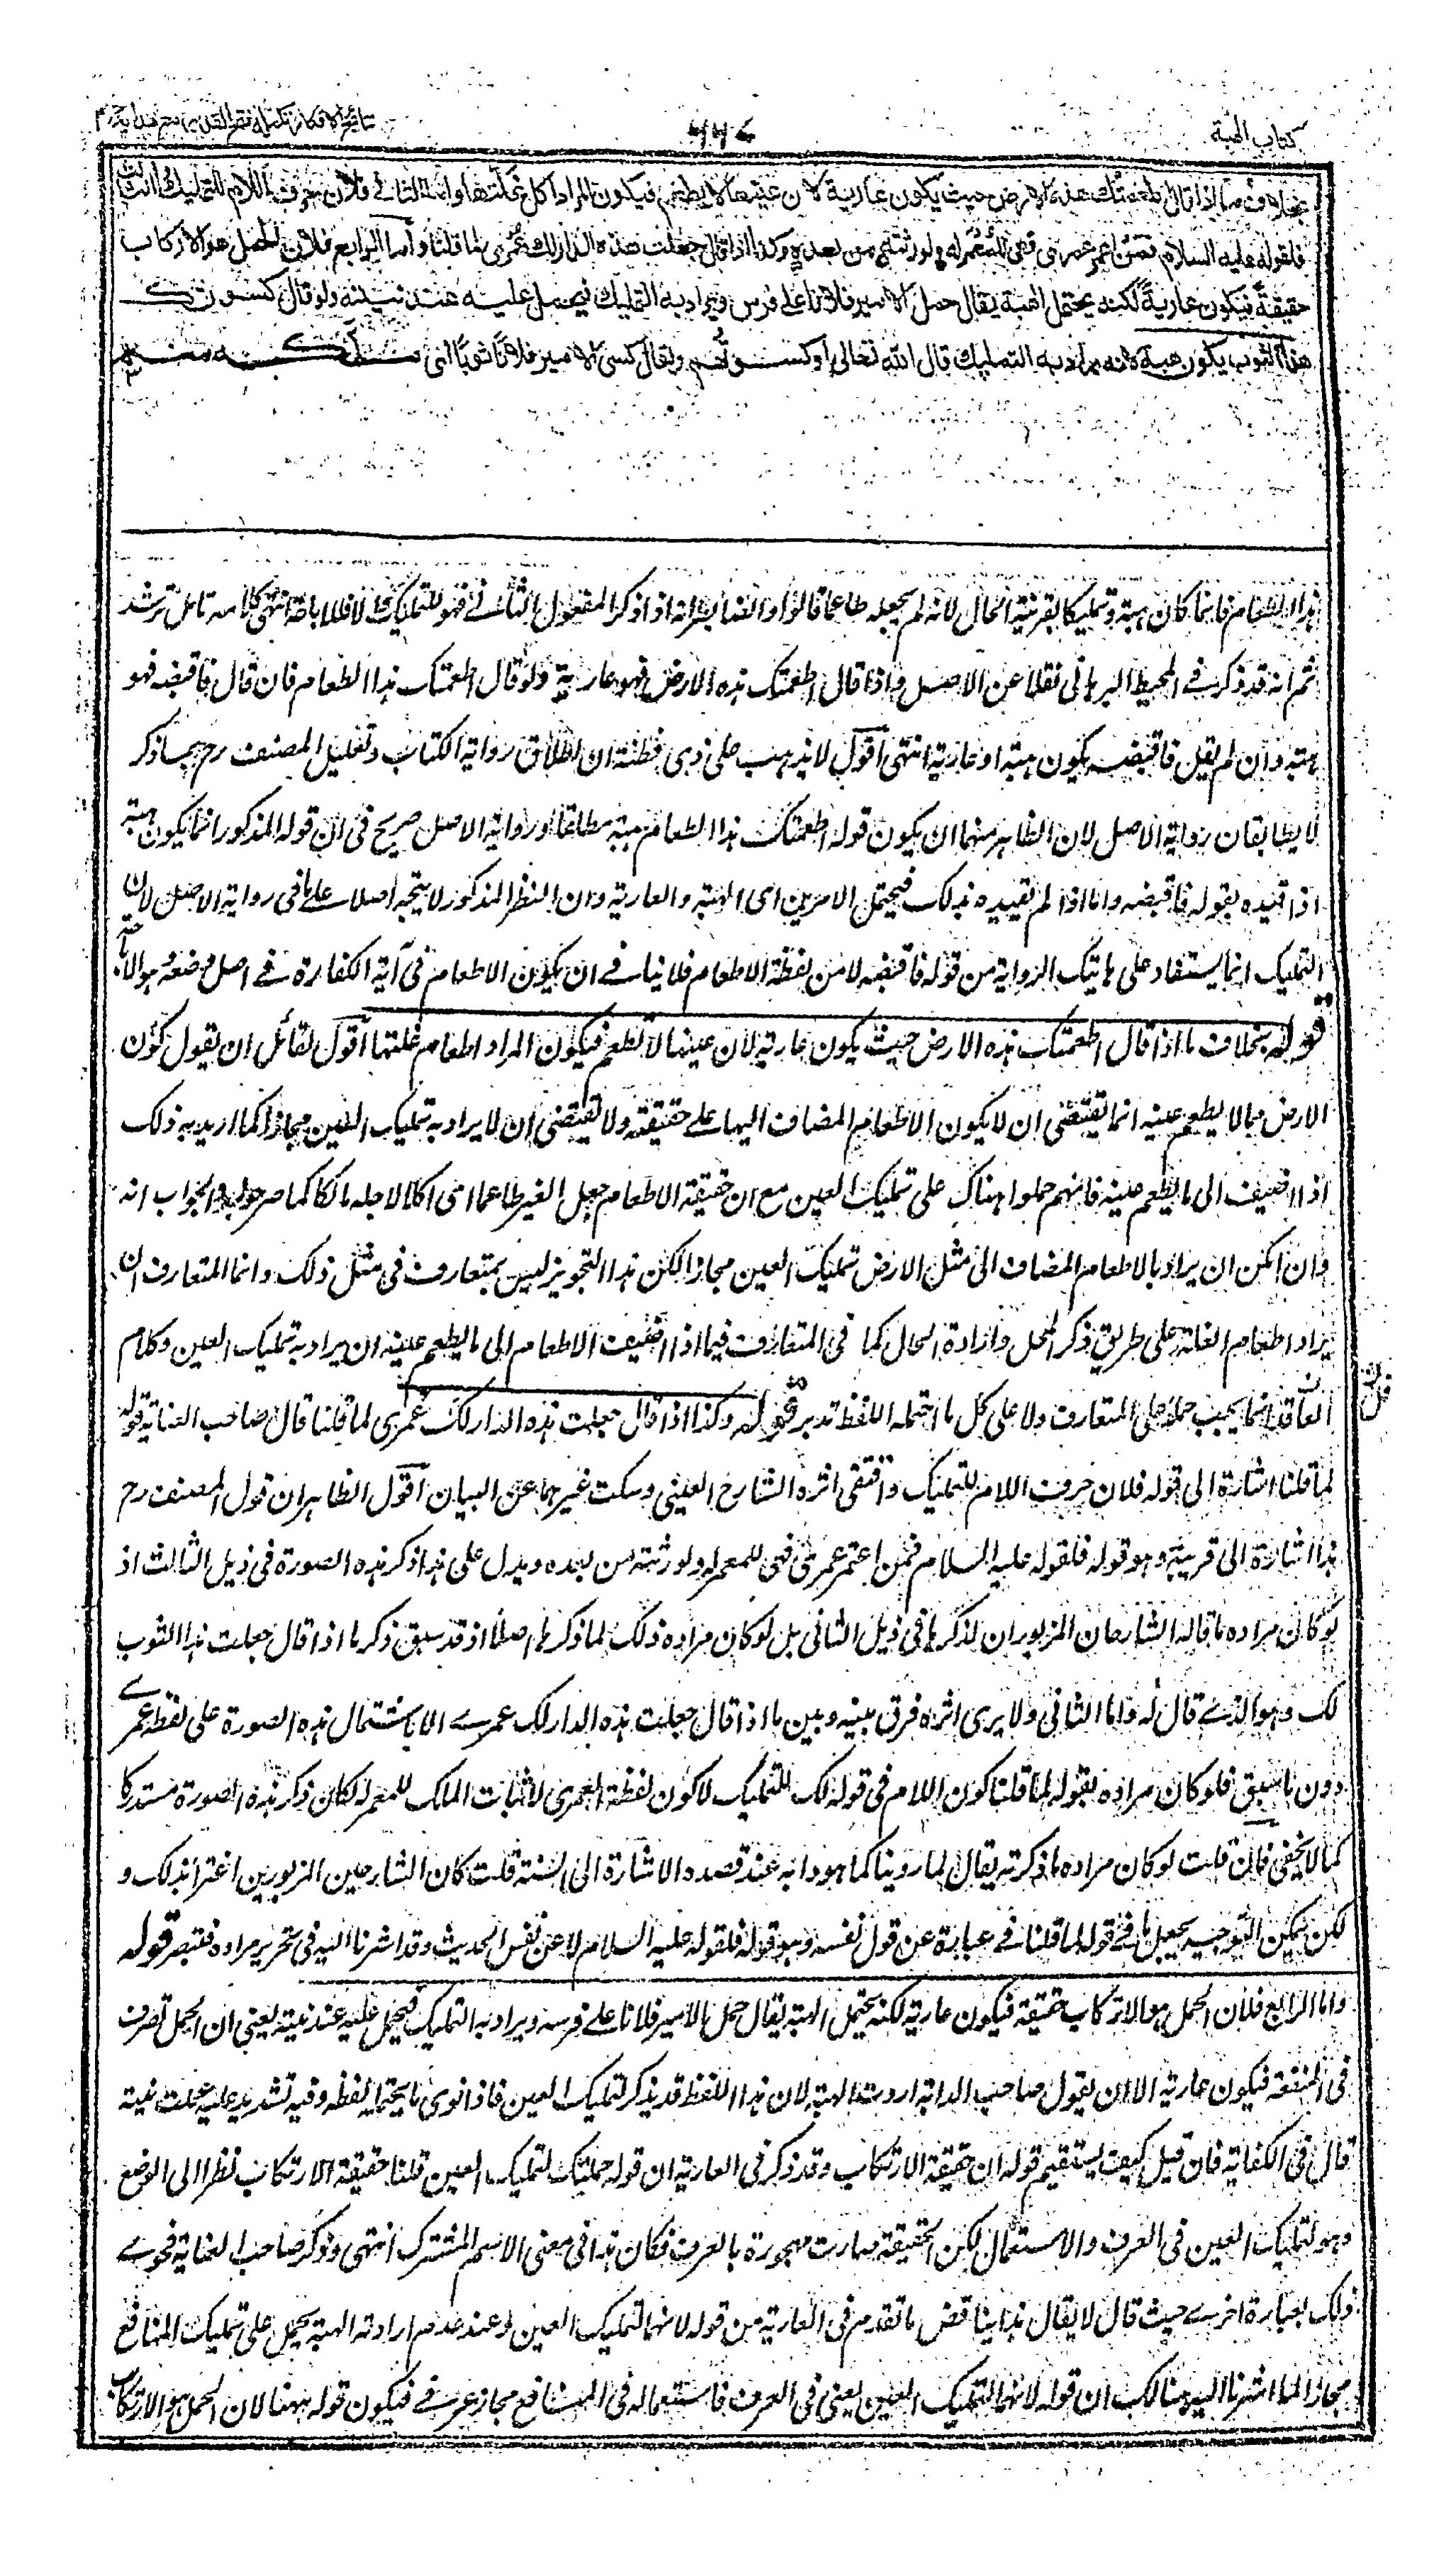 كتاب الهبة
٧٧٤
نتائج الافكار تكملة فتح القدير مع هداية ج ٣
بخلاف ما اذا قال اطعمتك هذه الارض حيث يكون عارية لان عينها لا يطعم فيكون المراد اكل غلتها واما الثانى فلان حرف اللام للتمليك واما الثالث
فلقوله عليه السلام فمن اعمر عمرى فهى للمعمر له ولورثته من بعده وكذا اذا قال جعلت هذه الدار لك عمرى لما قلنا واما الرابع فلان الحمل هو الاركاب
حقيقة فيكون عارية لكنه يحتمل الهبة يقال حمل الامير فلانا على فرس ويراد به التمليك فيحمل عليه عند نيته ولو قال كسوتك
هذا الثوب يكون هبة لانه يراد به التمليك قال الله تعالى او كسوتهم ويقال كسى الامير فلانا ثوبا اى ملكه منه
هذا الطعام فانما كان هبة وتمليكا بقرينة الحال لانه لم يجعله طاعما قالوا والضابط انه اذا ذكر المفعول الثانى فهو للتمليك والا فللاباحة انتهى كلامه تامل ترشد
ثم انه قد ذكر فى المحيط البرهانى نقلا عن الاصل واذا قال اطعمتك هذه الارض فهو عارية ولو قال اطعمتك هذا الطعام فان قال فاقبضه فهو
هبة وان لم يقل فاقبضه يكون هبة او عارية انتهى اقول لا يذهب على ذى فطنة ان اطلاق رواية الكتاب وتعليل المصنف رح بما ذكر
لا يطابقان رواية الاصل لان الظاهر منهما ان يكون قوله اطعمتك هذا الطعام هبة مطلقا ورواية الاصل صريح فى ان قوله المذكور انما يكون هبة
اذا قيده بقوله فاقبضه واما اذا لم يقيده بذلك فيحتمل الامرين اى الهبة والعارية وان النظر المذكور لا يتجه اصلا على ما فى رواية الاصل لان
التمليك انما يستفاد على هاتيك الرواية من قوله فاقبضه لا من لفظة الاطعام فلا ينافى ان يكون الاطعام فى آية الكفارة فى اصل وضعه وهو الاباحة
قوله بخلاف ما اذا قال اطعمتك هذه الارض حيث يكون عارية لان عينها لا تطعم فيكون المراد اطعام غلتها اقول لقائل ان يقول كون
الارض مما لا يطعم عينه انما يقتضى ان لا يكون الاطعام المضاف اليها على حقيقته ولا يقتضى ان لا يراد به تمليك العين مجازا كما اريد به ذلك
اذا اضيف الى ما يطعم عينه فانهم حملوا هناك على تمليك العين مع ان حقيقة الاطعام جعل الغير طاعما اى آكلا لا جعله مالكا كما صرحوا به والجواب انه
وان امكن ان يراد بالاطعام المضاف الى مثل الارض تمليك العين مجازا لكن هذا التجويز ليس بمتعارف فى مثل ذلك وانما المتعارف ان
يراد اطعام الغلة على طريق ذكر المحل وارادة الحال كما فى المتعارف فيما اذا اضيف الاطعام الى ما يطعم عينه ان يراد به تمليك العين وكلام
العاقد انما يجب حمله على المتعارف ولا على كل ما احتمله اللفظ تدبر قوله وكذا اذا قال جعلت هذه الدار لك عمرى لما قلنا قال صاحب العناية قوله
لما قلنا اشارة الى قوله فلان حرف اللام للتمليك واقتفى اثره الشارح العينى وسكت غيرهما عن البيان اقول الظاهر ان قول المصنف رح
هذا اشارة الى قريبه وهو قوله فلقوله عليه السلام فمن اعمر عمرى فهى للمعمر له ولورثته من بعده ويدل على هذا ذكر هذه الصورة فى ذيل الثالث اذ
لو كان مراده ما قاله الشارحان المزبوران لذكرها فى ذيل الثانى بل لو كان مراده ذلك لما ذكرها اصلا اذ قد سبق ذكر ما اذا قال جعلت هذا الثوب
لك وهو الذى قال له واما الثانى ولا يرى اثره فرق بينه وبين ما اذا قال جعلت هذه الدار لك عمرى الا باشتمال هذه الصورة على لفظة عمرى
دون ما سبق فلو كان مراده بقوله لما قلنا كون اللام فى قوله لك للتمليك لا كون لفظة العمرى لاثبات الملك للمعمر له لكان ذكر هذه الصورة مستدركا
كما لا يخفى فان قلت لو كان مراده ما ذكرته يقال لما روينا كما هو دابه عند قصده الاشارة الى السنة قلت كان الشارحين المزبورين اغترا بذلك و
لكن يمكن التوجيه بجعل ما فى قوله لما قلنا فى عبارة عن قول نفسه وهو قوله فلقوله عليه السلام لا عن نفس الحديث وقد اشرنا اليه فى تحرير مراده فتبصر قوله
واما الرابع فلان الحمل هو الاركاب حقيقة فيكون عارية لكنه يحتمل الهبة يقال حمل الامير فلانا على فرسه ويراد به التمليك فيحمل عليه عند نيته يعنى ان الحمل تصرف
فى المنفعة فيكون عارية الا ان يقول صاحب الدابة اردت الهبة لان هذا اللفظ قد يذكر لتمليك العين فاذا نوى ما يحتمله لفظه وفيه تشديد عليه عملت نيته
قال فى الكفاية فان قيل كيف يستقيم قوله ان حقيقة الارتكاب وقد ذكر فى العارية ان قوله حملتك لتمليك العين قلنا حقيقة الارتكاب نظرا الى الوضع
وهو لتمليك العين فى العرف والاستعمال لكن الحقيقة صارت مهجورة بالعرف فكان هذا فى معنى الاسم المشترك انتهى وذكر صاحب العناية فحوى
ذلك بعبارة اخرى حيث قال لا يقال هذا يناقض ما تقدم فى العارية من قوله لانهما لتمليك العين وعند عدم ارادته الهبة يحمل على تمليك المنافع
مجازا لما اشرنا اليه هنالك ان قوله لانهما لتمليك العين يعنى فى العرف فاستعماله فى المنافع مجاز عرفى فيكون قوله ههنا لان الحمل هو الارتكاب